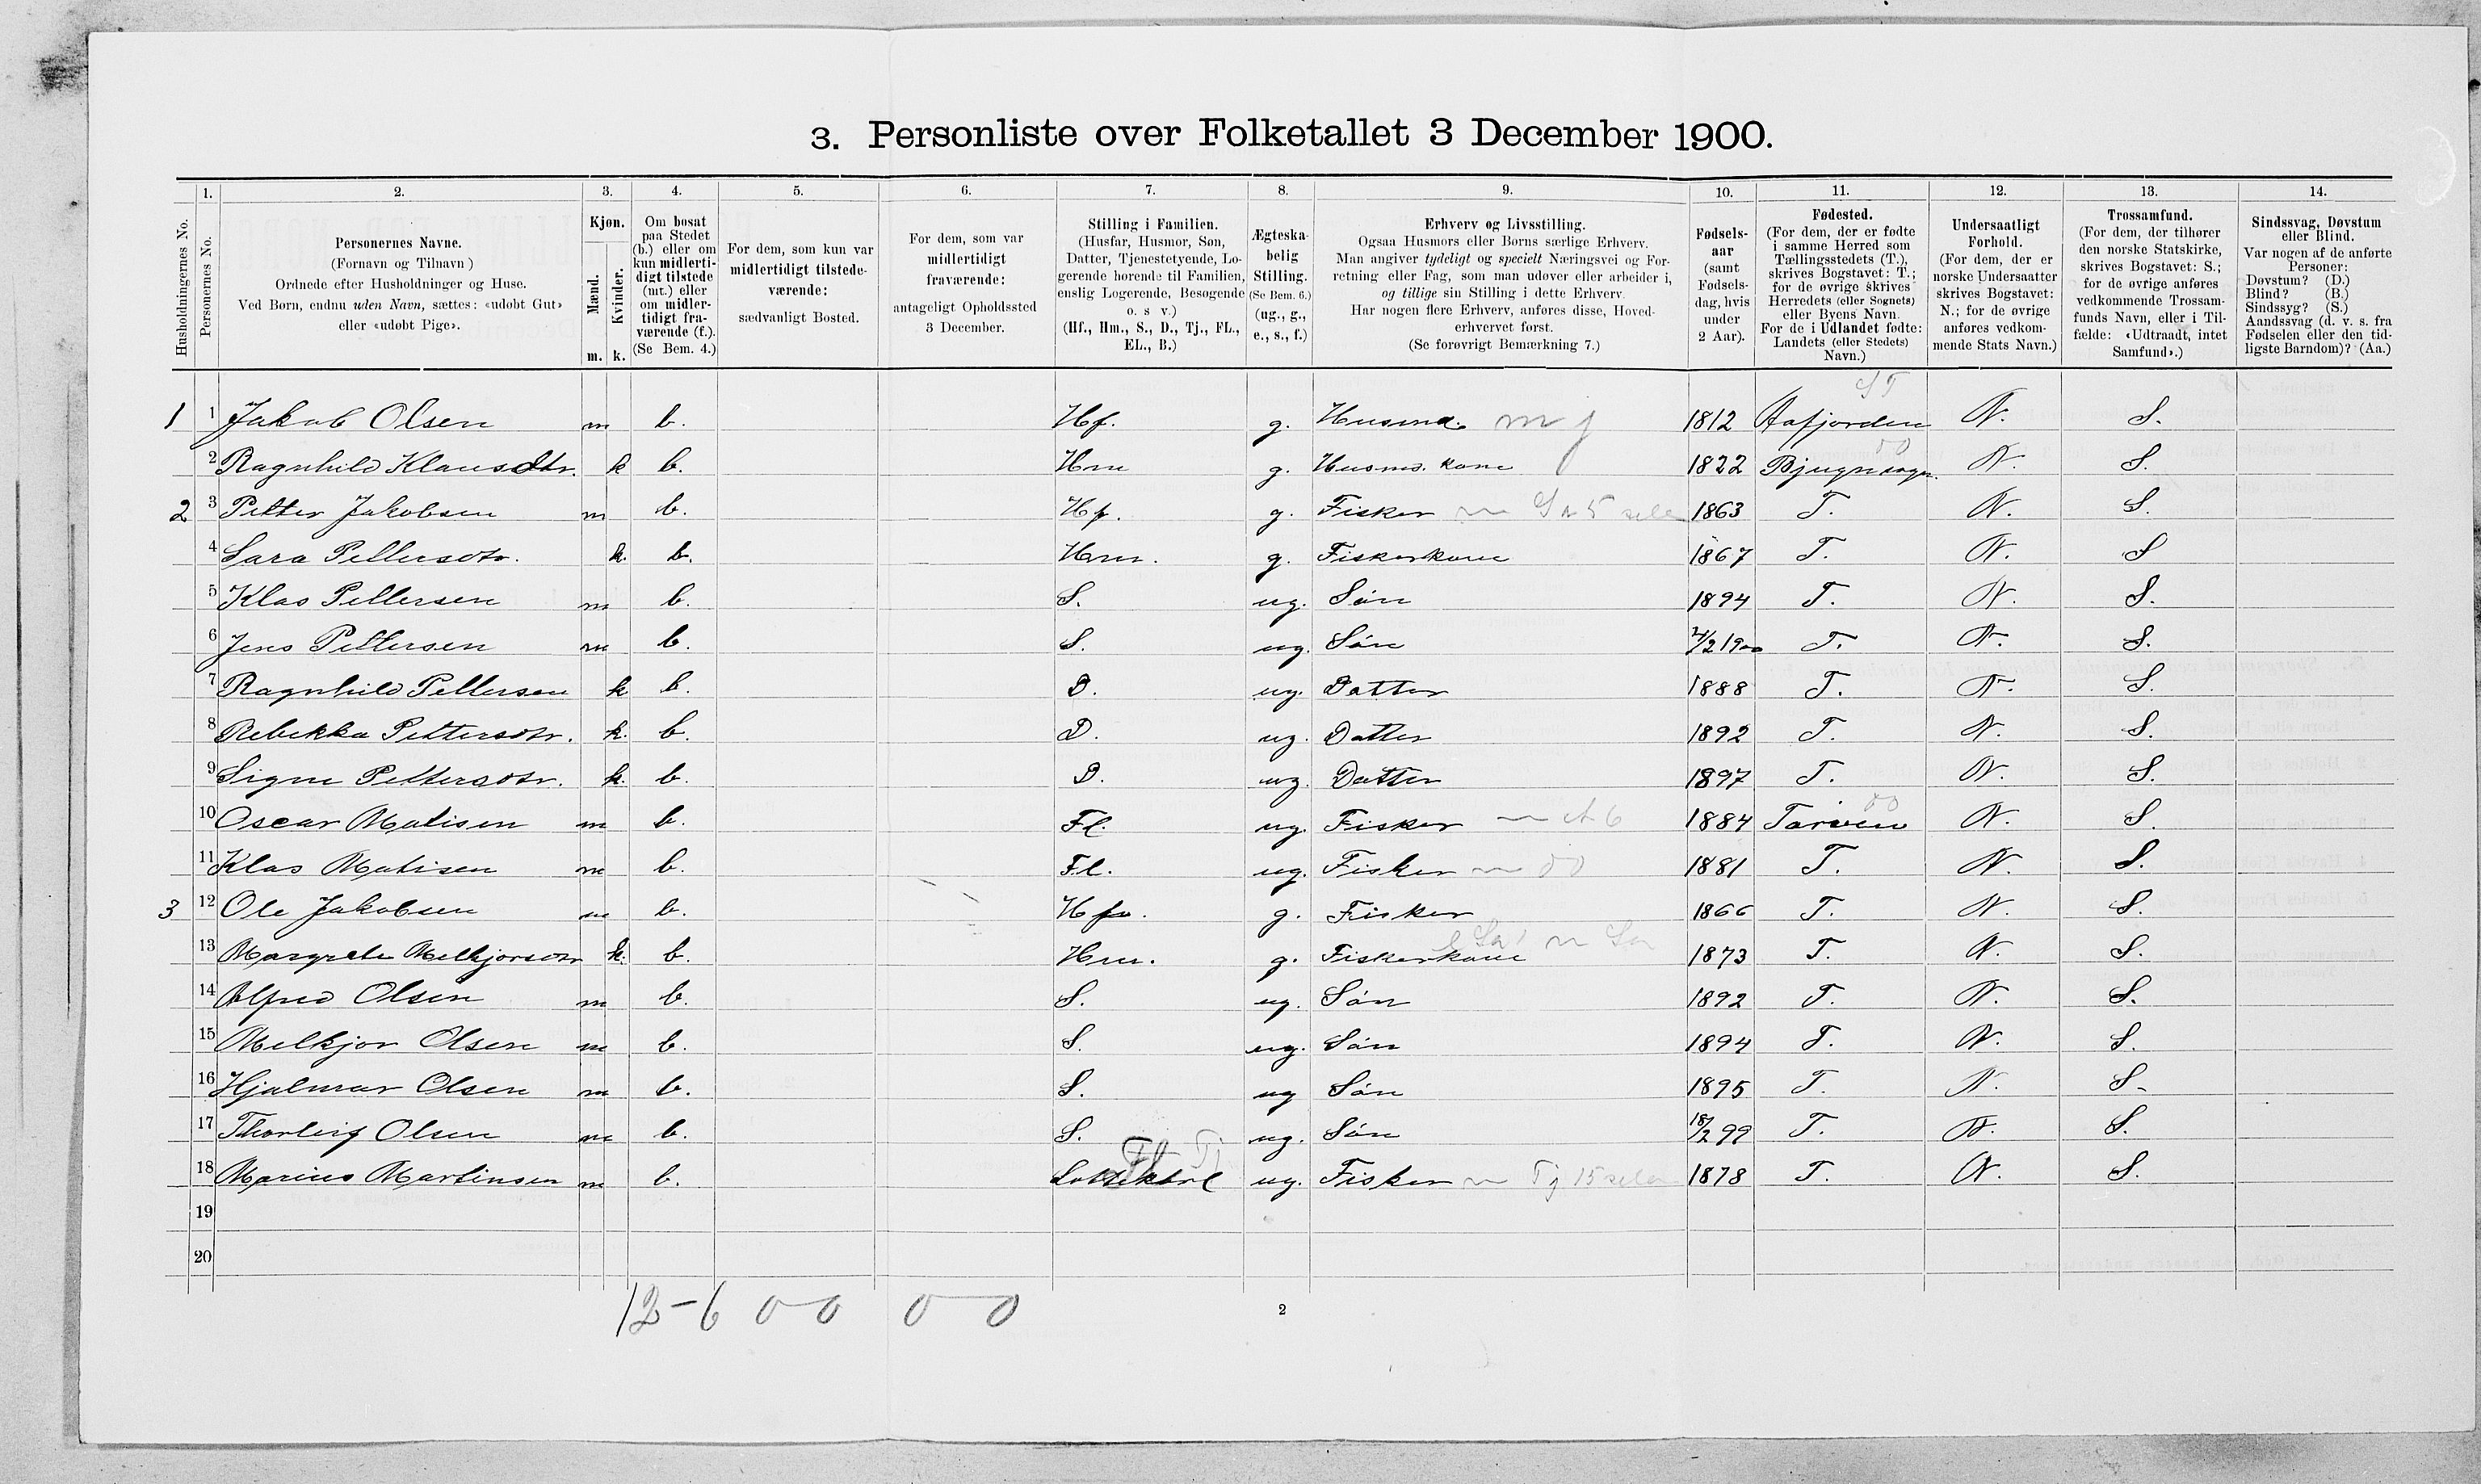 3. Personliste over Folketallet 3 December 1900.
1. 2. 3. 4. 5. 6. 7. 8. 9. 10. 11. 12. 13. 14.
Husholdningernes No.
Personernes No.
Personernes Navne.
(Fornavn og Tilnavn)
Ordnede efter Husholdninger og Huse.
Ved Børn, endnu uden Navn, sættes: «udøbt Gut»
eller «udøbt Pige».
Kjøn.
Mænd.
Kvinder.
m. k.
Om bosat
paa Stedet
(b.) eller om
kun midlerti-
digt tilstede
(mt.) eller
om midler-
tidigt fra-
værende (f.).
(Se Bem. 4.)
For dem, som kun var
midlertidigt tilstede-
værende:
sædvanligt Bosted.
For dem, som var
midlertidigt
fraværende:
antageligt Opholdssted
3 December.
Stilling i Familien.
(Husfar, Husmor, Søn,
Datter, Tjenestetyende, Lo-
gerende hørende til Familien,
enslig Logerende, Besøgende
o. s v.)
(Hf., Hm., S., D., Tj., FL.,
EL., B.)
Ægteska-
belig
Stilling.
(Se Bem. 6.)
(ug., g.,
e., s., f.)
Erhverv og Livsstilling.
Ogsaa Husmors eller Børns særlige Erhverv.
Man angiver tydeligt og specielt Næringsvei og For-
retning eller Fag, som man udøver eller arbeider i,
og tillige sin Stilling i dette Erhverv.
Har nogen flere Erhverv, anføres disse, Hoved-
erhvervet først.
(Se forøvrigt Bemærkning 7.)
Fødsels-
aar
(samt
Fødsels-
dag, hvis
under
2 Aar).
Fødested.
(For dem, der er fødte
i samme Herred som
Tællingsstedets (T.),
skrives Bogstavet: T.;
for de øvrige skrives
Herredets (eller Sognets)
eller Byens Navn.
For de i Udlandet fødte:
Landets (eller Stedets)
Navn.)
Undersaatligt
Forhold.
(For dem, der er
norske Undersaatter
skrives Bogstavet:
N.; for de øvrige
anføres vedkom-
mende Stats Navn.)
Trossamfund.
(For dem, der tilhører
den norske Statskirke,
skrives Bogstavet: S.;
for de øvrige anføres
vedkommende Trossam-
funds Navn, eller i Til-
fælde: «Udtraadt, intet
Samfund».)
Sindssvag, Døvstum
eller Blind.
Var nogen af de anførte
Personer:
Døvstum? (D.)
Blind? (B.)
Sindssyg? (S.)
Aandssvag (d. v. s. fra
Fødselen eller den tid-
ligste Barndom)? (Aa.)
1 1 Jakob Olsen m b. Hf. g. Husmd. m j 1812 Aafjorden N. S.
2 Ragnhild Klausdtr. k b. Hm g. Husms. kone 1822 Bjugnsogn. N. S.
2 3 Petter Jakobsen m b. Hf. g. Fisker 1863 T. N. S.
4 Sara Pettersdtr. k. b. Hm. g. Fiskerkone 1867 T. N. S
5 Klas Pettersen m b. S. ug. Søn 1894 T. N. S.
6 Jens Pettersen m b. S. ug. Søn 4/2 1900 T. N. S.
7 Ragnhild Pettersen k b. D. ug. Datter 1888 T. N. S.
8 Rebekka Pettersdtr. k. b. D. ug. Datter 1892 T. N. S.
9 Signe Pettersdtr. k. b. D. ug. Datter 1897 T. N. S.
10 Oscar Matisen m b. Fl. ug. Fisker 1884 Tarven N. S.
11 Klas Matisen m b. Fl. ug. Fisker 1881 T. N. S.
3 12 Ole Jakobsen m b. Hf. g. Fisker 1866 T. N. S.
13 Margrete Melkjorsdtr k. b. Hm. g. Fiskerkone 1873 T. N. S.
14 Alfred Olsen m b. S. ug. Søn 1892 T. N. S.
15 Melkjor Olsen m b. S. ug. Søn 1894 T. N. S.
16 Hjalmar Olsen m b. S. ug Søn 1895 T. N. S.
17 Thorleif Olsen m b. S. ug. Søn 18/2 99 T. N. S.
18 Marius Martinsen m b. Fl Tj ug. Fisker Tj 1878 T. N. S.
19
20
12-6 0-0 0-0
2